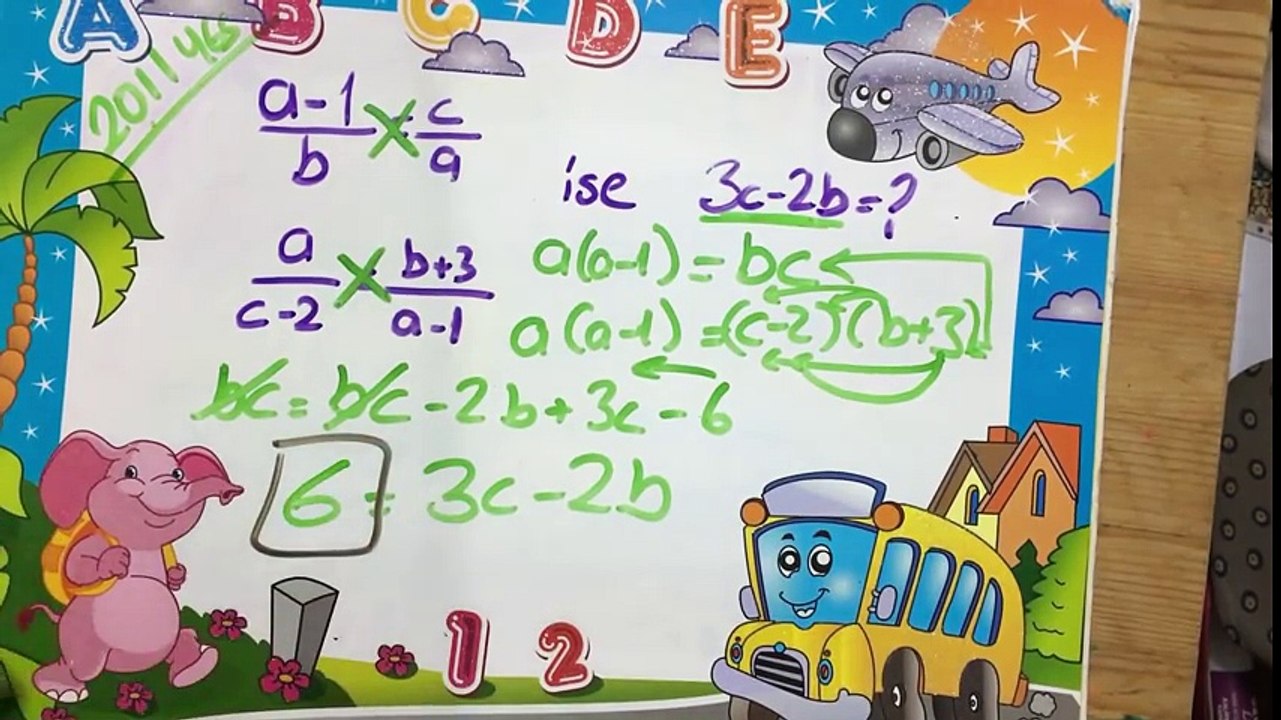 A B C D E
2011 YGS
a-1/b = c/a
ise 3c-2b=?
a/c-2 = b+3/a-1
a(a-1) = bc
a(a-1) = (c-2)(b+3)
bc = bc - 2b + 3c - 6
6 = 3c - 2b
1 2